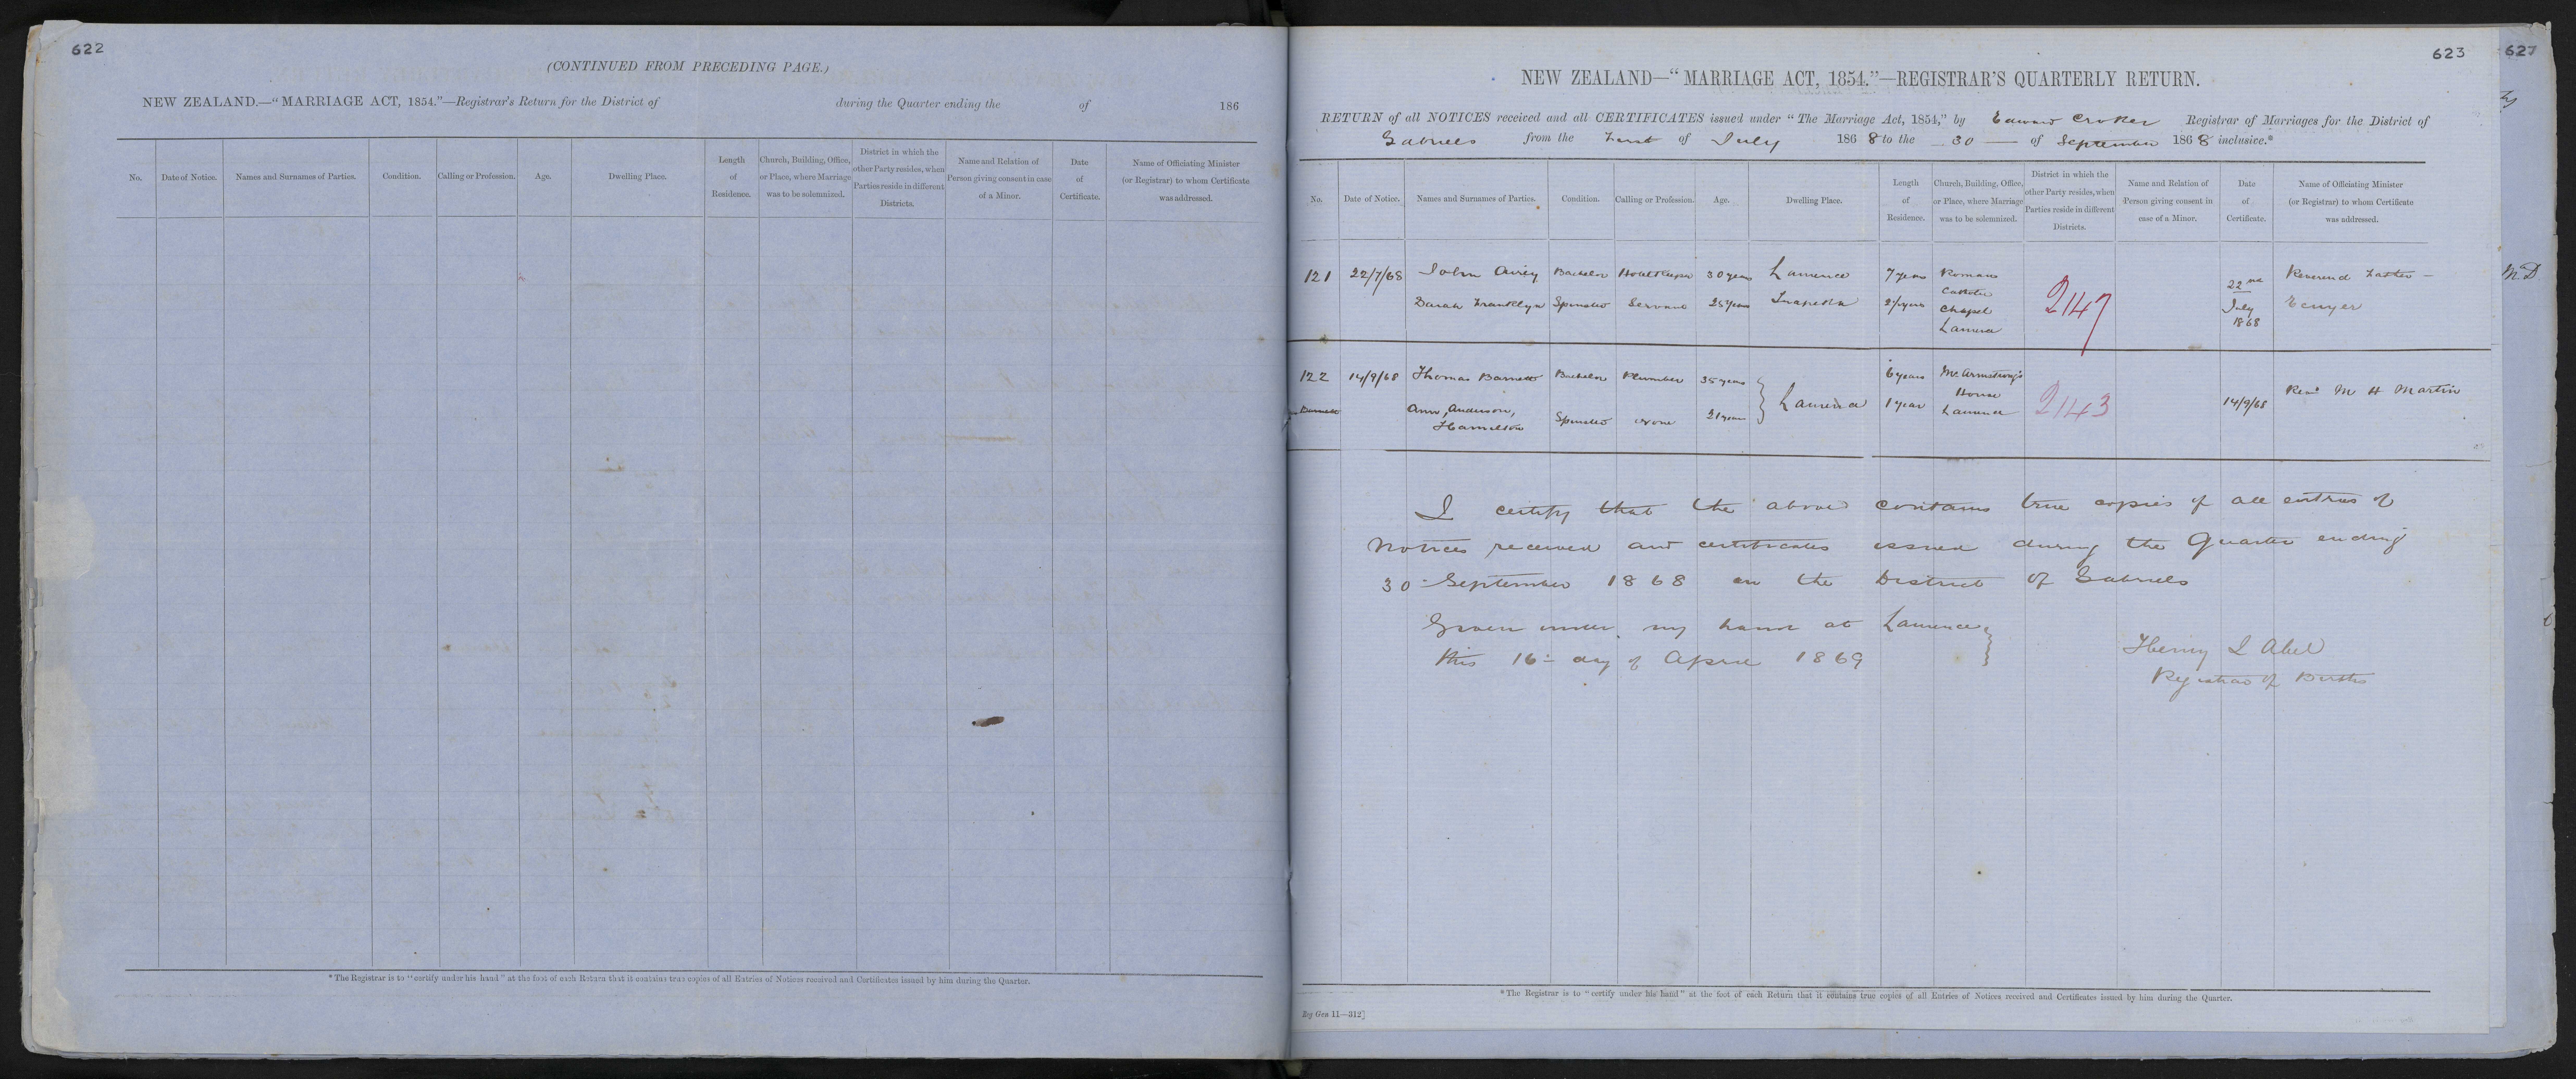 622
(CONTINUED FROM PRECEDING PAGE.)
NEW ZEALAND.—"MARRIAGE ACT, 1854."—Registrar's Return for the District of during the Quarter ending the of 186
No. Date of Notice. Names and Surnames of Parties. Condition. Calling or Profession. Age. Dwelling Place. Length of Residence. Church, Building, Office, or Place, where Marriage was to be solemnized. District in which the other Party resides, when Parties reside in different Districts. Name and Relation of Person giving consent in case of a Minor. Date of Certificate. Name of Officiating Minister (or Registrar) to whom Certificate was addressed.
* The Registrar is to "certify under his hand" at the foot of each Return that it contains true copies of all Entries of Notices received and Certificates issued by him during the Quarter.
623
627
NEW ZEALAND—"MARRIAGE ACT, 1854."—REGISTRAR'S QUARTERLY RETURN.
RETURN of all NOTICES received and all CERTIFICATES issued under "The Marriage Act, 1854," by Edward Croker Registrar of Marriages for the District of
Gabriels from the First of July 1868 to the 30 of September 1868 inclusive.*
No. Date of Notice. Names and Surnames of Parties. Condition. Calling or Profession. Age. Dwelling Place. Length of Residence. Church, Building, Office, or Place, where Marriage was to be solemnized. District in which the other Party resides, when Parties reside in different Districts. Name and Relation of Person giving consent in case of a Minor. Date of Certificate. Name of Officiating Minister (or Registrar) to whom Certificate was addressed.
121 22/7/68 John Airey Bachelor Hotelkeeper 30 years Lawrence 7 years Roman Catholic Chapel Lawrence 2147 22nd July 1868 Reverend Father
Sarah Franklyn Spinster Servant 25 years Tuapeka 2½ years
122 14/9/68 Thomas Barnett Bachelor Plumber 35 years Lawrence 6 years Mr. Armstrong's House Lawrence 2143 14/9/68 Revd M H Martin
Barnett Ann, Anderson, Hamilton Spinster None 21 years 1 year
M D
I certify that the above contains true copies of all entries of
Notices received and certificates issued during the Quarter ending
30 September 1868 in the District of Gabriels
Given under my hand at Lawrence
this 16 day of April 1869
Henry L Abel
Registrar of Births
* The Registrar is to "certify under his hand" at the foot of each Return that it contains true copies of all Entries of Notices received and Certificates issued by him during the Quarter.
Reg Gen 11—312]